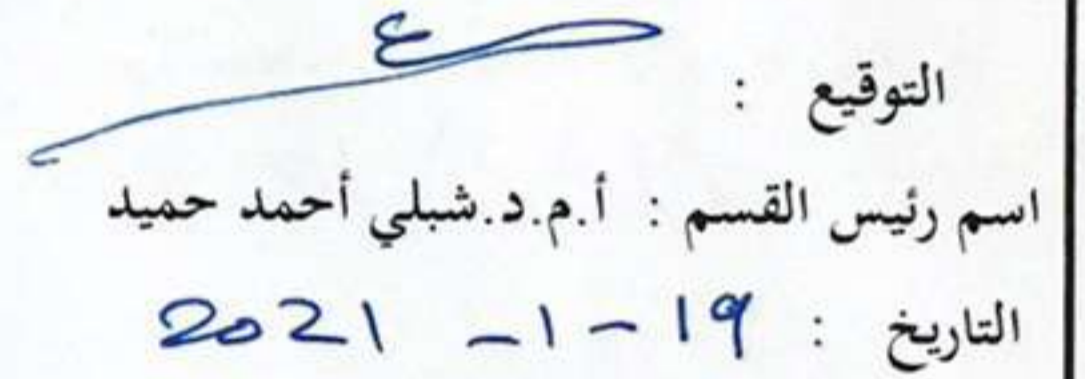 التوقيع :
اسم رئيس القسم : أ.م.د.شبلي أحمد حميد
التاريخ : 19 - 1 - 2021